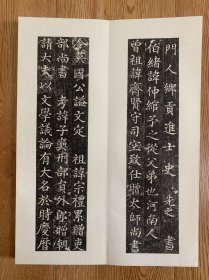 門人鄉貢進士史 先之 書
伯緒諱仲綰子之從父弟也河南人
曾祖諱齊賢守司空致仕贈太師尚書
令英國公謚文定 祖諱宗禮累贈吏
部尚書 考諱子奭刑部員外郎贈朝
請大夫 以文學議論有大名於時慶曆